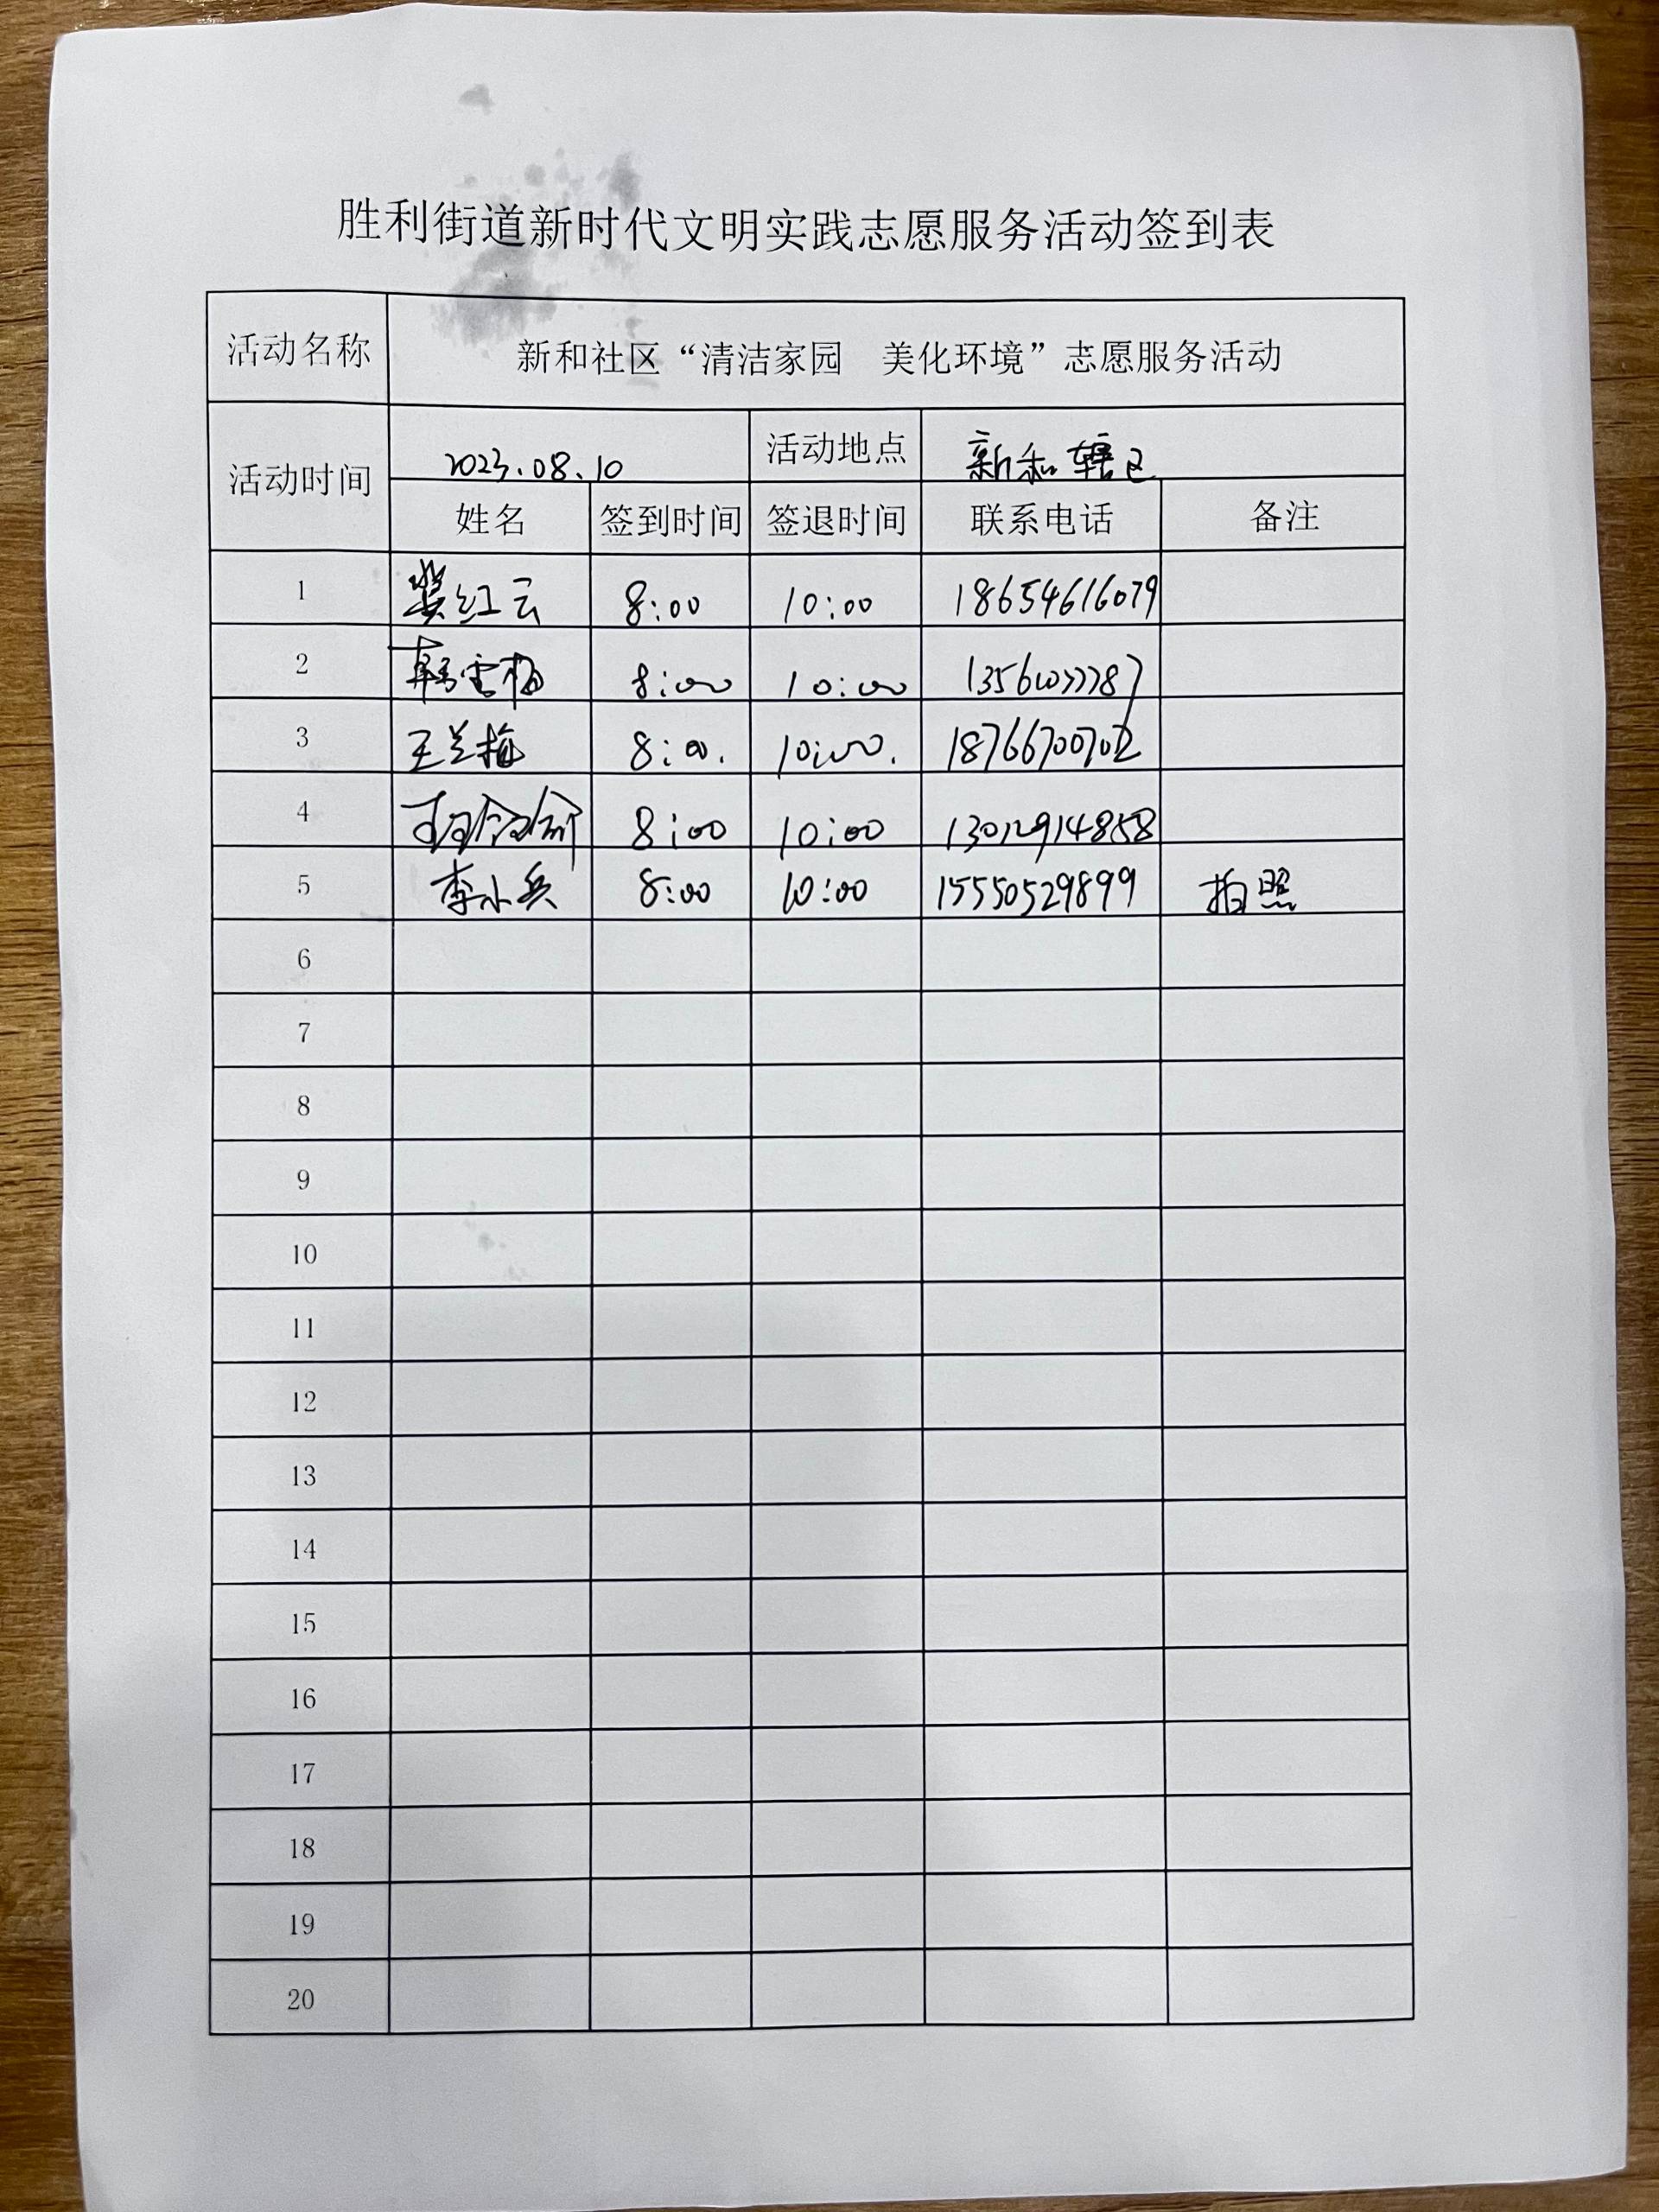 胜利街道新时代文明实践志愿服务活动签到表
活动名称 新和社区“清洁家园 美化环境”志愿服务活动
活动时间 2023.08.10 活动地点 新和辖区
姓名 签到时间 签退时间 联系电话 备注
1 冀红云 8:00 10:00 18654616079
2 韩雪梅 8:00 10:00
3 王兰梅 8:00. 10:00. 18766700702
4 8:00 10:00 13012914858
5 李小兵 8:00 10:00 15550529899 拍照
6
7
8
9
10
11
12
13
14
15
16
17
18
19
20